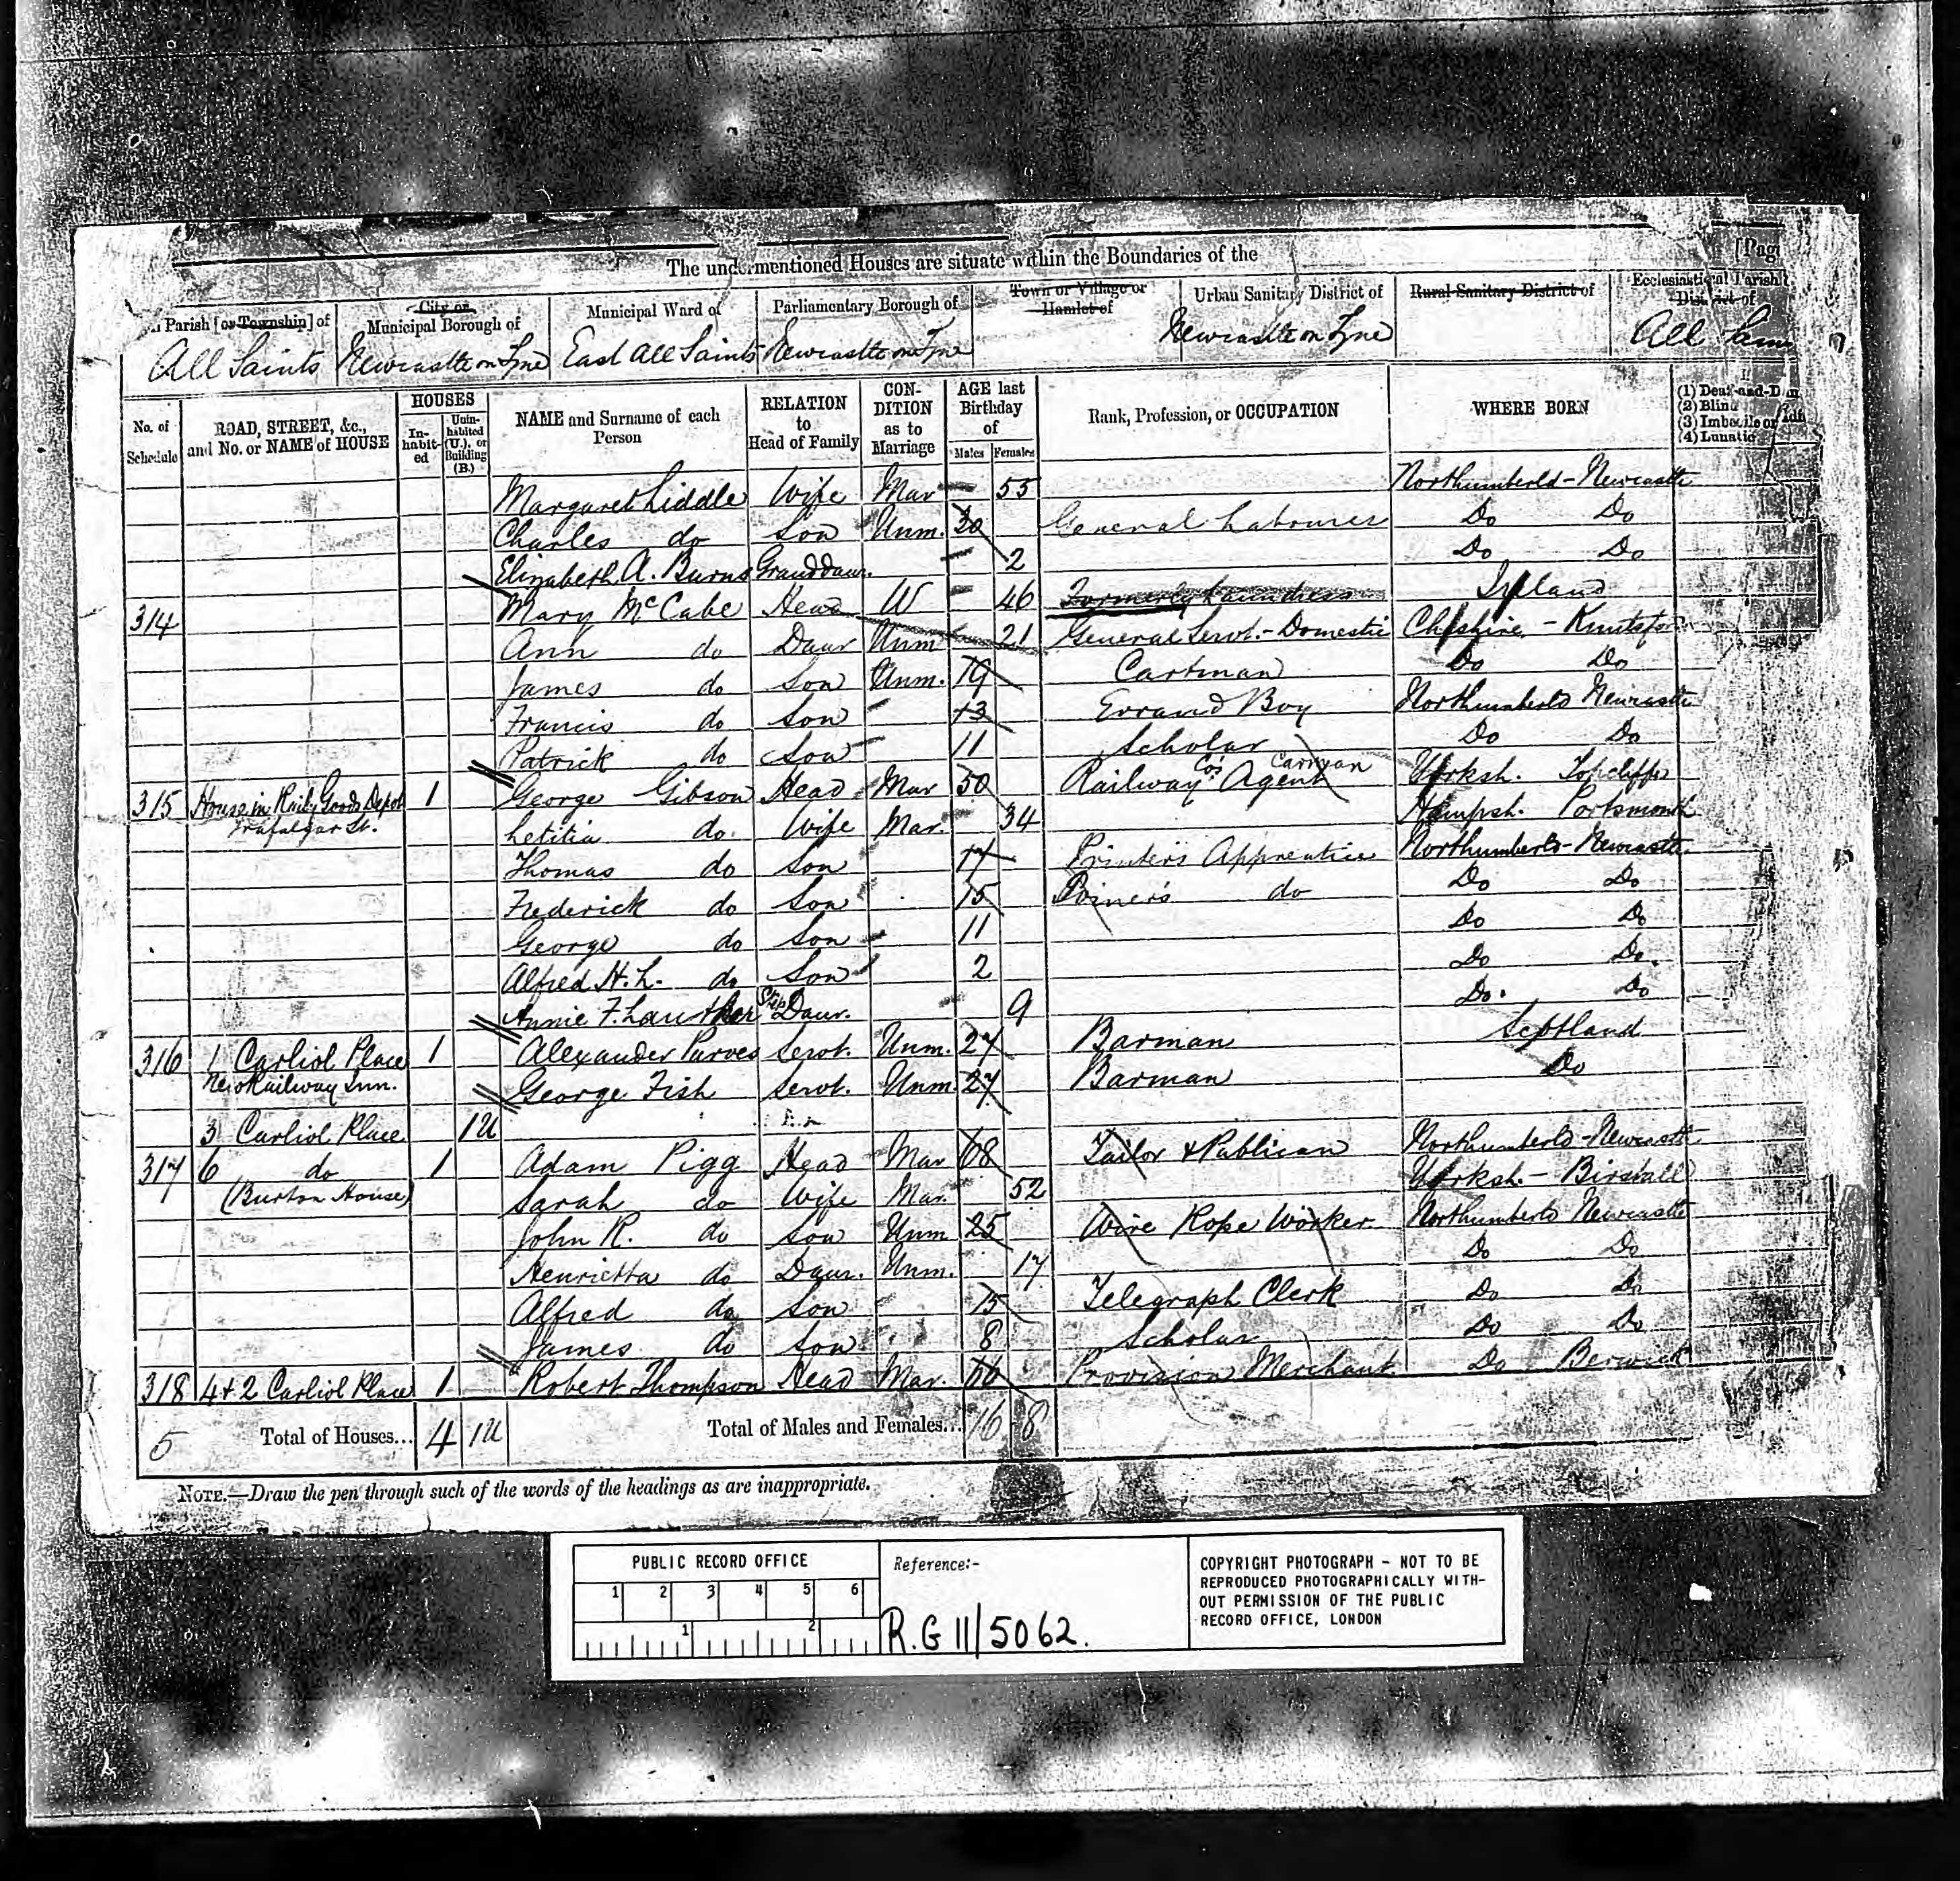 The undermentioned Houses are situate within the Boundaries of the
[Pag
Parish [or Township] of
City or Municipal Borough of
Municipal Ward of
Parliamentary Borough of
Town or Village or Hamlet of
Urban Sanitary District of
Rural Sanitary District of
Ecclesiastical Parish District of
All Saints
Newcastle on Tyne
East All Saints
Newcastle on Tyne
Newcastle on Tyne
All Sain
No. of Schedule
ROAD, STREET, &c., and No. or NAME of HOUSE
HOUSES
In-habit-ed
Unin-habited (U.), or Building (B.)
NAME and Surname of each Person
RELATION to Head of Family
CON-DITION as to Marriage
AGE last Birthday of
Males
Females
Rank, Profession, or OCCUPATION
WHERE BORN
(1) Deaf-and-Dum
(2) Blind
(3) Imbecile or Idi
(4) Lunatic
Margaret Liddle Wife Mar 55 Northumberld - Newcastle
Charles do Son Unm. 30 General Labourer Do Do
Elizabeth A. Burns Granddaur. 2 Do Do
314 Mary McCabe Head W 46 Formerly Laundress Ireland
Ann do Daur Unm 21 General Servt. - Domestic Cheshire - Knutsfor
James do Son Unm. 19 Cartman Do Do
Francis do Son 13 Errand Boy Northumberld Newcastle
Patrick do Son 11 Scholar Do Do
315 House in Raily Goods Depot 1 George Gibson Head Mar 50 Railway Co's Agent Yorksh. Topcliffe
Trafalgar St. Letitia do. Wife Mar. 34 Hampsh. Portsmouth
Thomas do Son 17 Printer's Apprentice Northumberld - Newcastle
Frederick do Son 15 do Do Do
George do Son 11 Do Do
Alfred H. L. do Son 2 Do Do.
Annie F. Step Daur. 9 Do. Do
316 1 Carliol Place 1 Alexander Purves Servt. Unm. 27 Barman Scotland
New Railway Inn. George Fish Servt. Unm. 27 Barman Do
3 Carliol Place 1U
317 6 do 1 Adam Pigg Head Mar 68 Tailor & Publican Northumberld - Newcastle
(Burton House) Sarah do Wife Mar. 52 Yorksh. - Birstall
John R. do Son Unm 25 Wire Rope Worker Northumberld Newcastle
Henrietta do Daur. Unm. 17 Do Do
Alfred do Son 15 Telegraph Clerk Do Do
James do Son 8 Scholar Do Do
318 4 & 2 Carliol Place 1 Robert Thompson Head Mar. 66 Provision Merchant Do Berwick
5 Total of Houses... 4 1U Total of Males and Females... 16 8
NOTE.—Draw the pen through such of the words of the headings as are inappropriate.
PUBLIC RECORD OFFICE
1 2 3 4 5 6
1 2
Reference:-
R.G 11/5062.
COPYRIGHT PHOTOGRAPH - NOT TO BE
REPRODUCED PHOTOGRAPHICALLY WITH-
OUT PERMISSION OF THE PUBLIC
RECORD OFFICE, LONDON